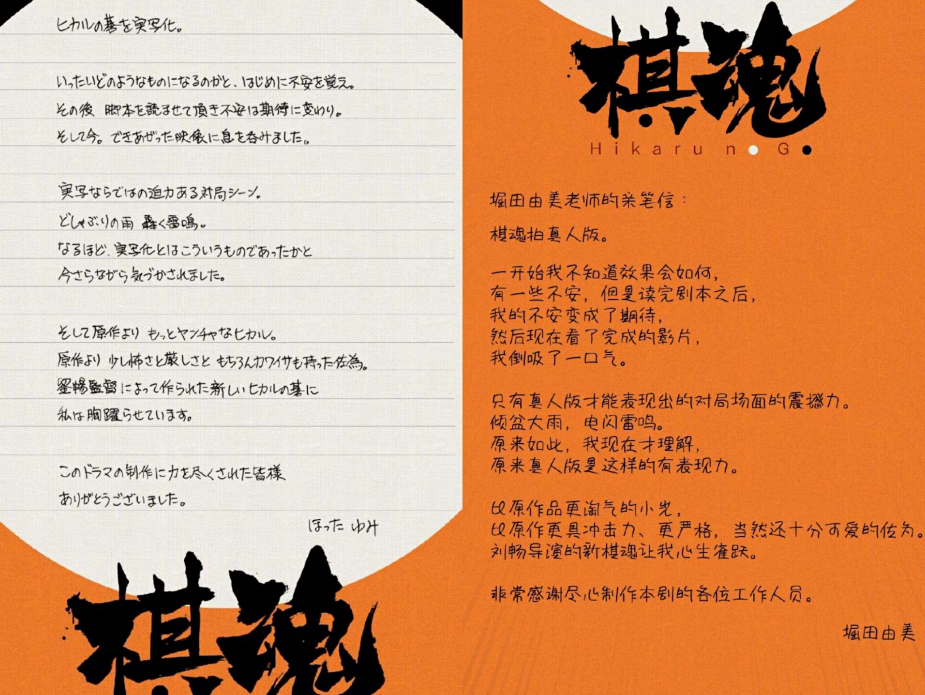 ヒカルの碁を実写化。
いったいどのようなものになるのかと、はじめに不安を覚え。
その後 脚本を読ませて頂き不安は期待に変わり。
そして今。できあがった映像に息を呑みました。
実写ならではの迫力ある対局シーン。
どしゃぶりの雨 轟く雷鳴。
なるほど、実写化とはこういうものであったかと
今さらながら気づかされました。
そして原作より もっとヤンチャなヒカル。
原作より 少し怖さと厳しさと もちろんカワイサも持った佐為。
劉暢監督によって作られた新しいヒカルの碁に
私は胸躍らせています。
このドラマの制作に力を尽くされた皆様
ありがとうございました。
ほった ゆみ
棋魂
棋魂
Hikaru no Go
堀田由美老师的亲笔信：
棋魂拍真人版。
一开始我不知道效果会如何，
有一些不安，但是读完剧本之后，
我的不安变成了期待，
然后现在看了完成的影片，
我倒吸了一口气。
只有真人版才能表现出的对局场面的震撼力。
倾盆大雨，电闪雷鸣。
原来如此，我现在才理解，
原来真人版是这样的有表现力。
比原作品更淘气的小光，
比原作更具冲击力、更严格，当然还十分可爱的佐为。
刘畅导演的新棋魂让我心生雀跃。
非常感谢尽心制作本剧的各位工作人员。
堀田由美